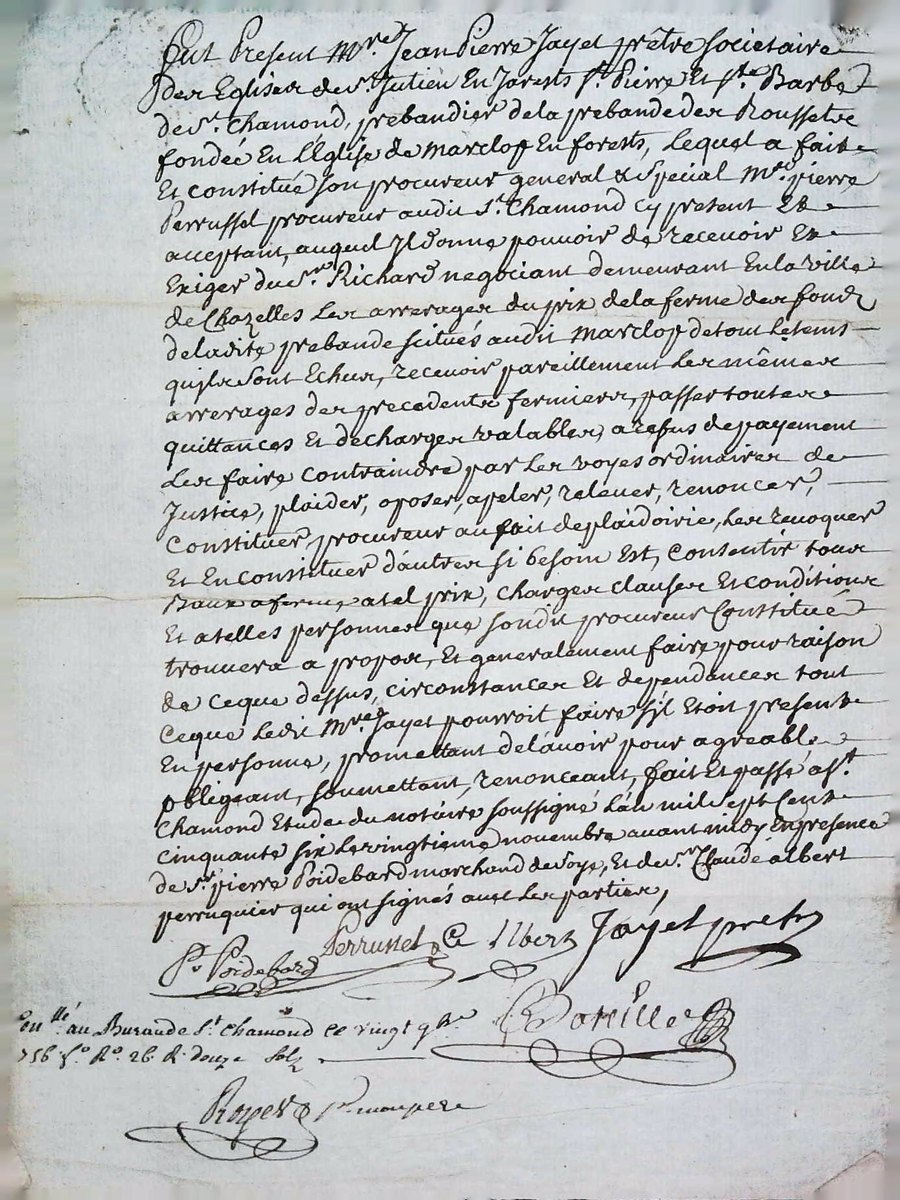 Fut Present Mre Jean Pierre Jayet prêtre societaire
Des Eglises de St. Julien En Jarests St. Pierre Et Ste Barbe
de St. Chamond, prebandier de la prebande des Roussets
fondée En L'Eglise de Marclop En forests, Lequel a fait
Et constitué son procureur general & Special Mre. pierre
Perrussel procureur audit St. Chamond cy present Et
acceptant, auquel Il donne pouvoir de recevoir Et
Exiger du Sr. Richard negociant demeurant En la ville
de Chazelles Les arrerages du prix de la ferme des fonds
de ladite prebande scitués audit Marclop de tout Letems
quils sont Echus, recevoir pareillement Les mêmes
arrerages des precedents fermiers, passer toutes
quittances Et decharges valables, a refus de payement
Les faire contraindre par Les voyes ordinaires de
Justice, plaider, oposer, apeler, relever, renoncer,
Constituer procureur au fait de plaidoirie, Les revoquer
Et En constituer d'autres si besoin Est, consentir tous
Baux a ferme a tel prix, charges clauses Et conditions
Et a telles personnes que sondit procureur Constitué
trouvera a propos, Et generalement faire pour raison
de ceque dessus, circonstances Et dependances tout
ceque Ledit Mre. Jayet pourroit faire s'il Etoit present
En personne, promettant de l'avoir pour agreable
obligeant, soumettant, renonceant, fait Et passé a St.
Chamond Etude du notaire soussigné L'an mil sept Cent
cinquante six Le vingtieme novembre avant midy En presence
de Sr. pierre Poidebard marchand de soye, Et de Sr. Claude albert
perruquier qui ont signés avec Les parties,
P. Poidebard Perrussel C Albert Jayet pretre
Conllé au Bureau de St. Chamond ce vingt 9bre
756 fo. Ro. 26. R. douze sols